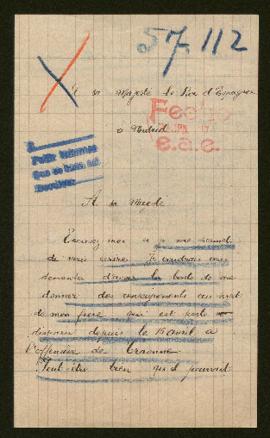 57-112
A sa Majesté le Roi d'Espagne
Fecho
e.a.e.
a Madrid
Pedir informes
A sa Majesté
Excusez moi si je me
de vous écrire. Je voudrais vous
demander d'avoir la bonté de me
donner des renseignements au sujet
de mon frère qui est porté
disparu depuis le 16 avril à
l'offensive de Craonne
Peut être bien qu'il pourrait